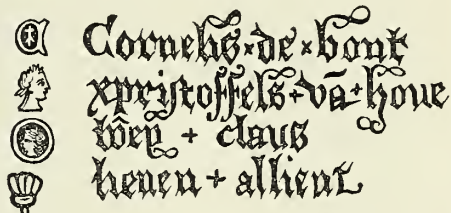 Cornelis × de × bont
xpristoffels + vā + houe
wēy + claus
heuen + allient